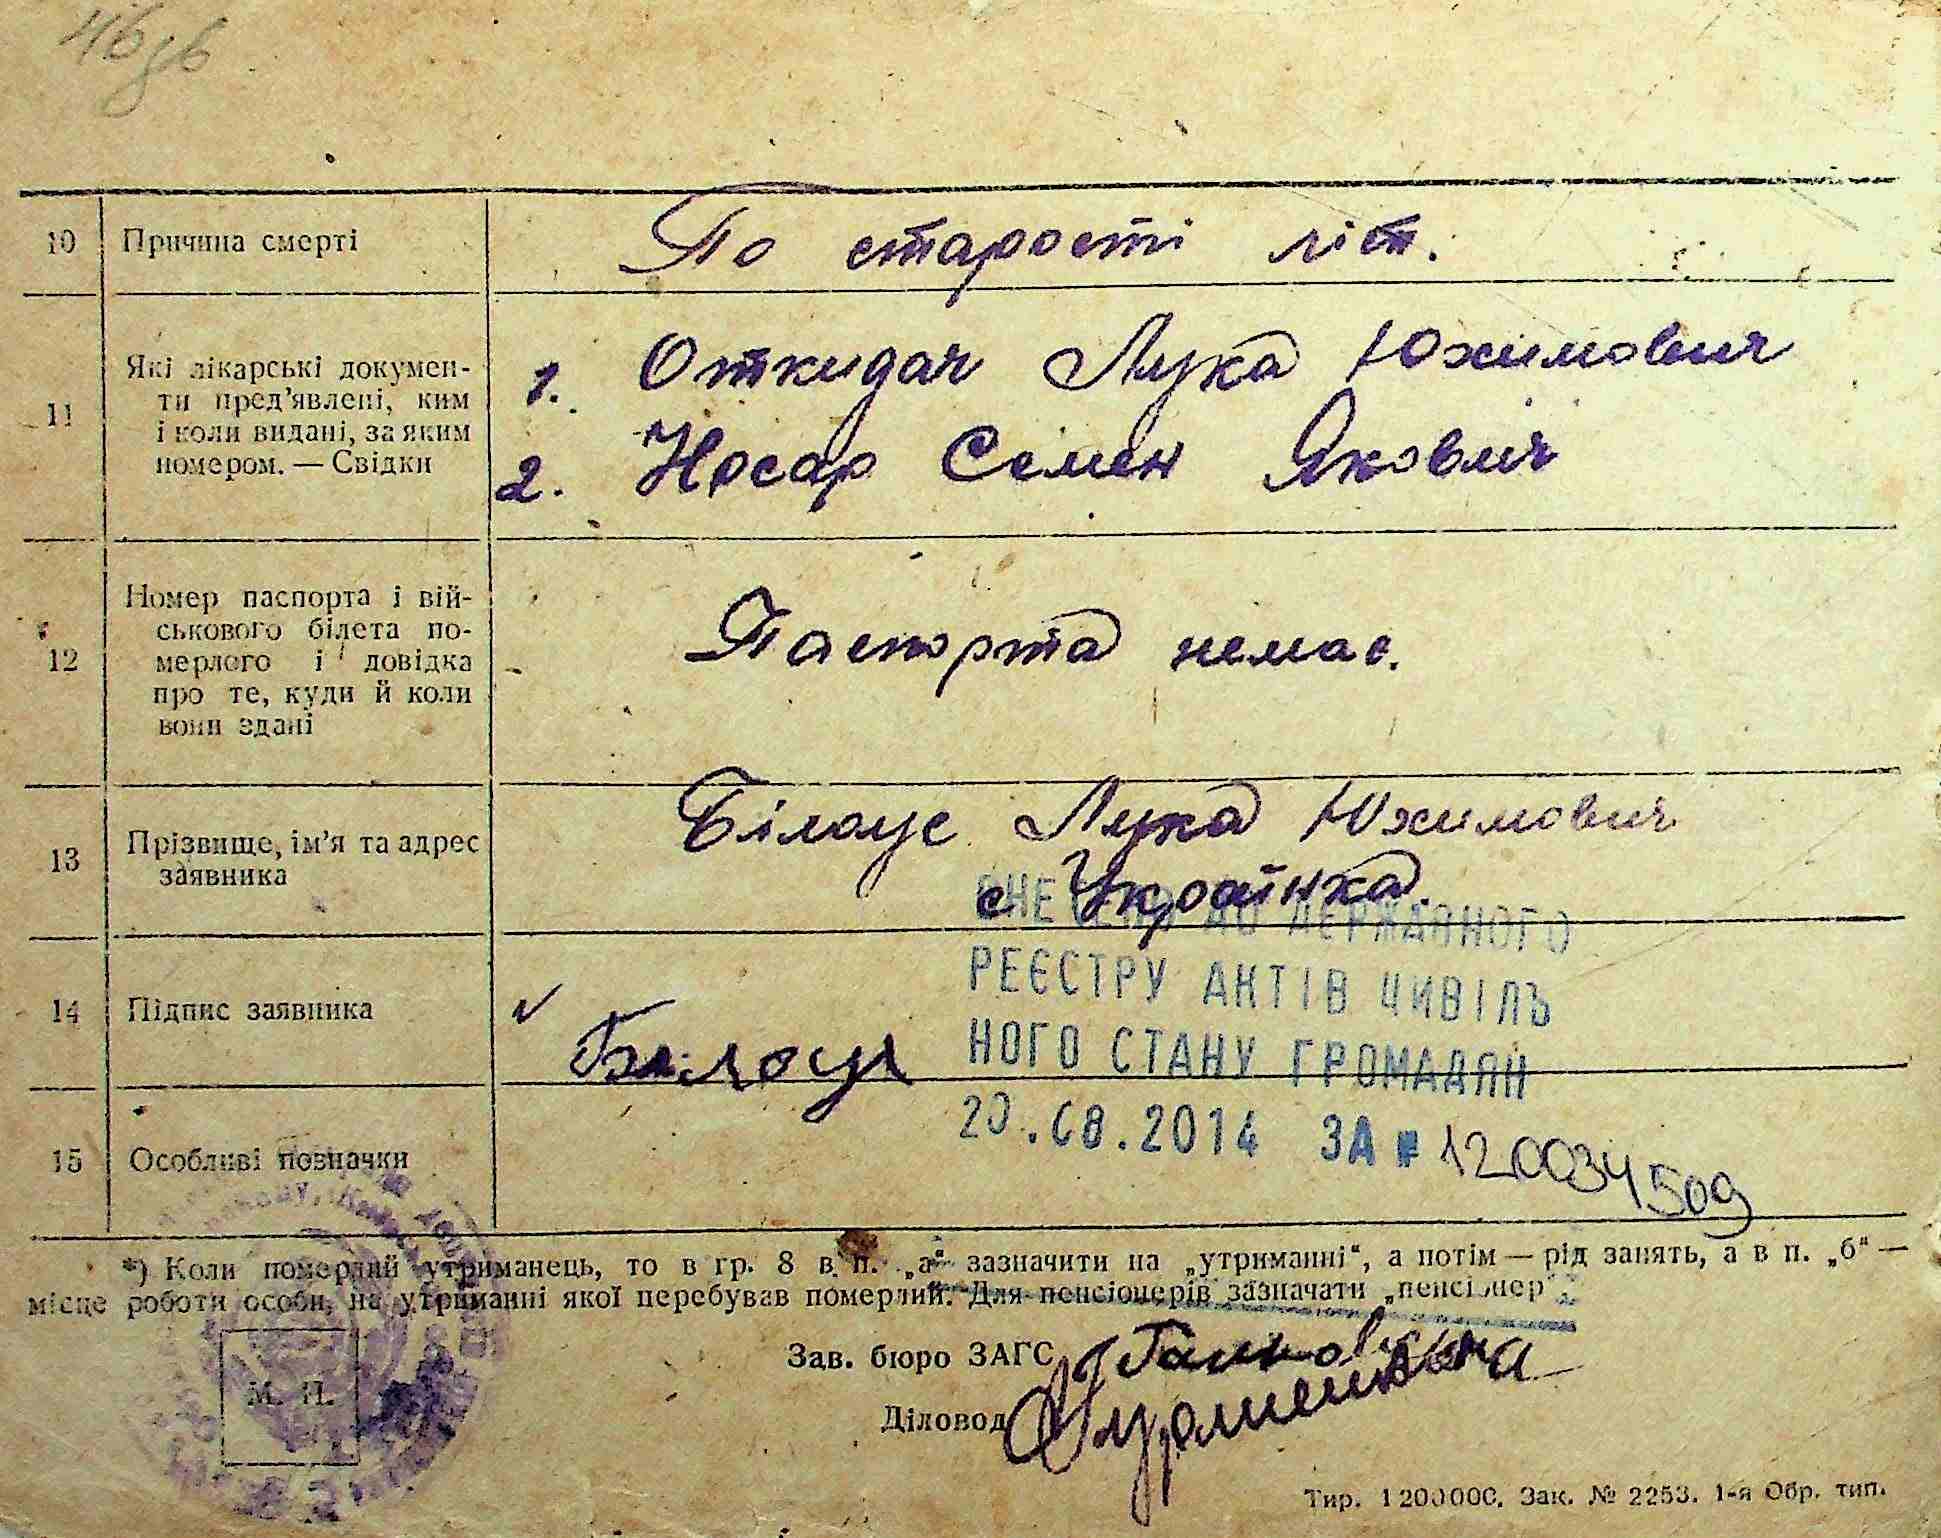 10 Причина смерті По старости літ.
11 Які лікарські докумен-
ти пред'явлені, ким
і коли видані, за яким
номером. — Свідки
1. Откидач Лука Юхимович
2. Носар Семен Яковліч
12 Номер паспорта і вій-
ськового білета по-
мерлого і довідка
про те, куди й коли
вони здані
Паспорта немає.
13 Прізвище, ім'я та адрес
заявника
Білоус Лука Юхимович
с Українка.
ВНЕСЕНО ДО ДЕРЖАВНОГО
РЕЄСТРУ АКТІВ ЦИВІЛЬ
НОГО СТАНУ ГРОМАДЯН
20.08.2014 ЗА № 120034509
14 Підпис заявника
15 Особливі позначки
*) Коли померлий утриманець, то в гр. 8 в п. „а“ зазначити на „утриманні“, а потім — рід занять, а в п. „б“ —
місце роботи особи, на утриманні якої перебував померлий. Для пенсіонерів зазначати „пенсіонер“.
Зав. бюро ЗАГС
Діловод
М. П.
Тир. 1200000. Зак. № 2253. 1-я Обр. тип.